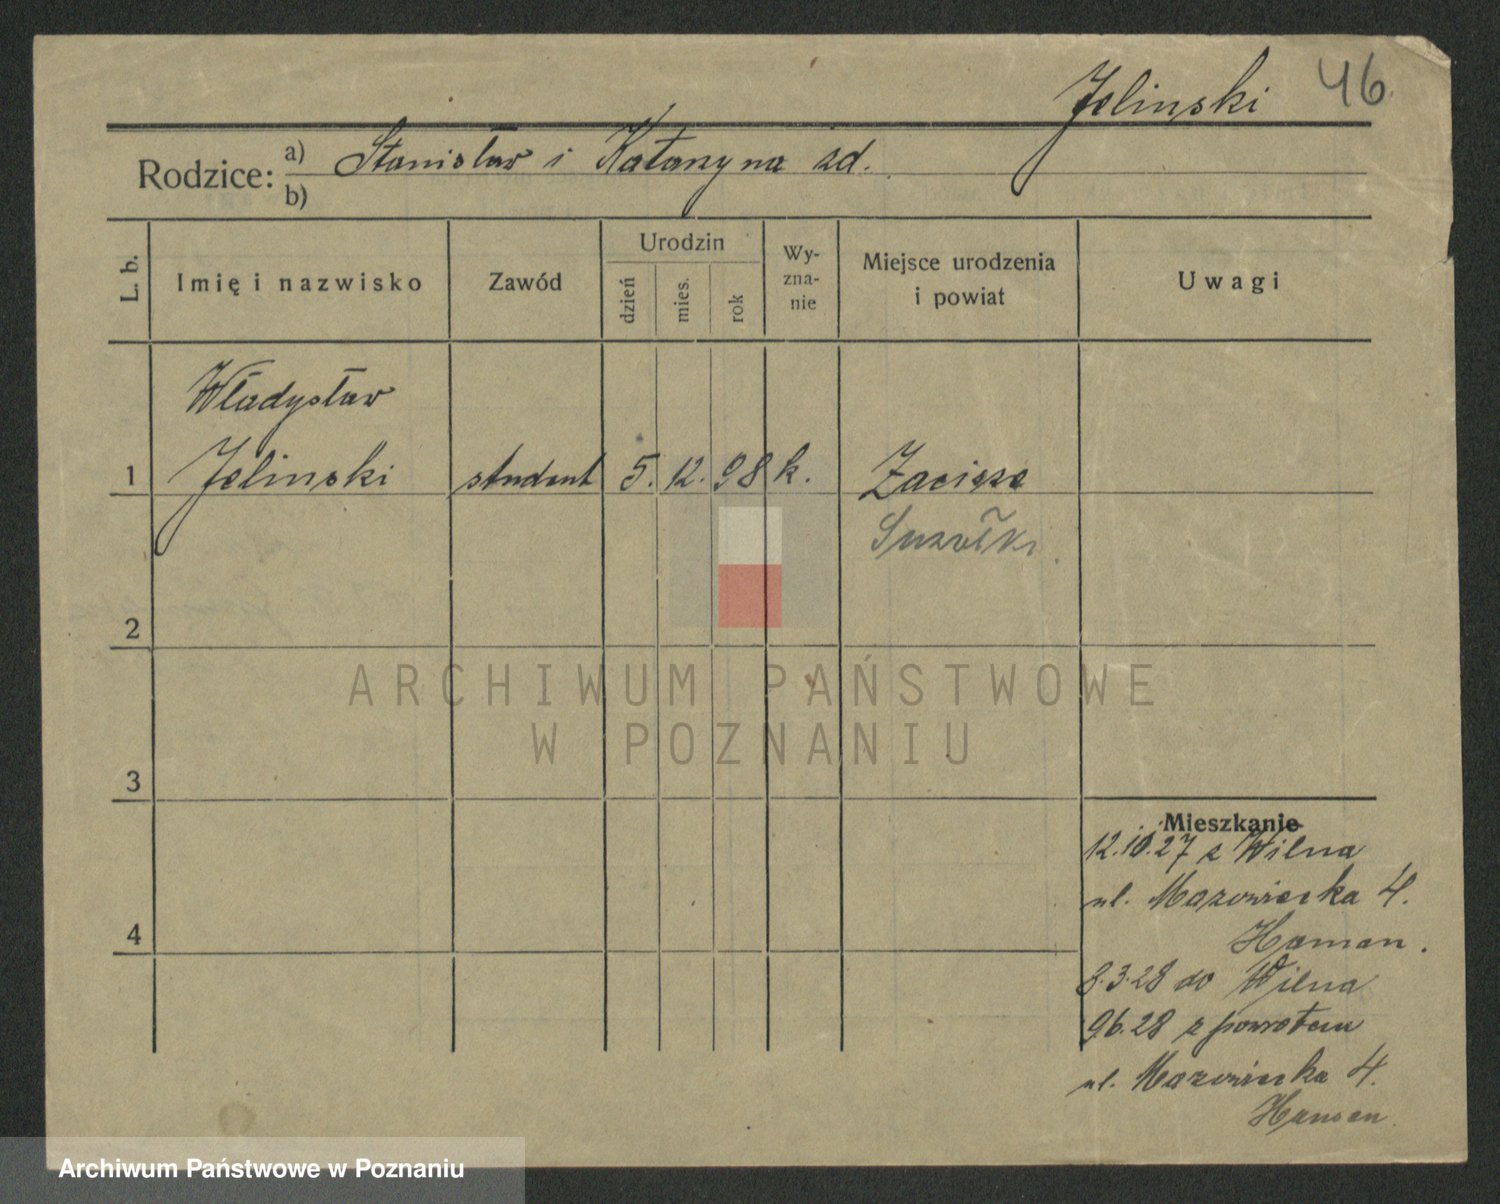 Jelinski 46
Rodzice: a) Stanisław i Katarzyna zd.
b)
L. b. Imię i nazwisko Zawód Urodzin dzień mies. rok Wy-zna-nie Miejsce urodzenia i powiat Uwagi
Władysław
1 Jelinski student 5. 12. 98 k. Zacisze
Suwałki
2
ARCHIWUM PAŃSTWOWE
W POZNANIU
3
Mieszkanie
12.10.27 z Wilna
ul. Mazowiecka 4.
4
8.3.28 do Wilna
9.6.28 z powrotem
ul. Mazowiecka 4.
Hansen
Archiwum Państwowe w Poznaniu